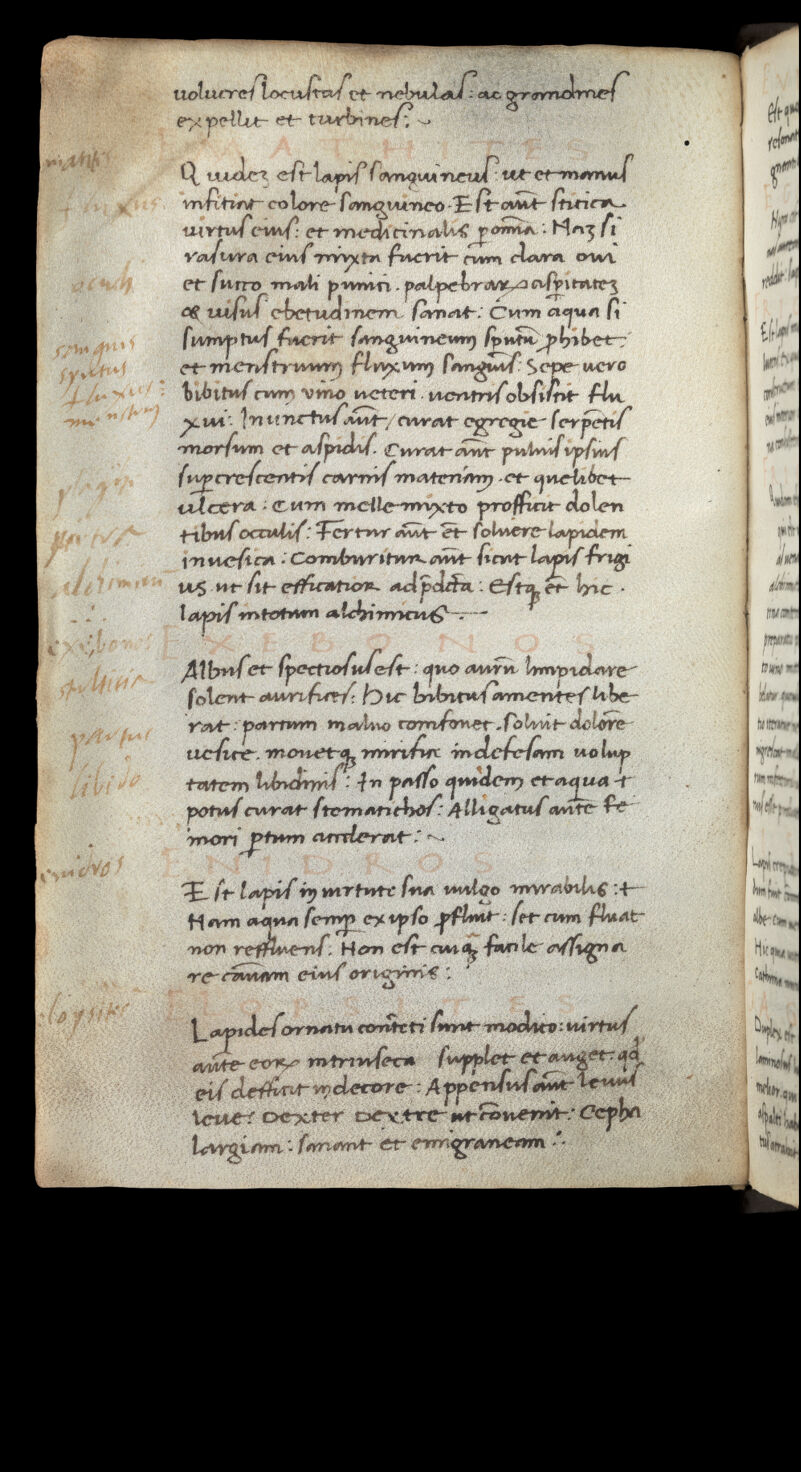 uolucres locustas et nebulas: ac grandines
expellit et turbines:
EMATHITES
Quidez est lapis sanguineus: ut et manus
infitiat colore sanguineo. Est aūt stitica
uirtus eius: et medicinalis p omīa: Naz si
rasura eius mixta fuerit cum clara oui
et sucro mali punici. palpebraꝝ aspitatez
& uisus ebetudinem sanat: Cum aqua si
sumptus fuerit sanguineum sputū phibet:
et menstruum fluxum sanguis: Sepe uero
bibitus cum vino ueteri. uentris obsistit flu
xui: Inunctus aūt / curat egregie serpētis
morsum et aspidis. Curat aūt puluis ipsius
supcrescentis carnis materiam. et quelibet
ulcera: Cum melle mixto profficit dolen
tibus occulis: Fertur aūt ēt soluere lapidem
in uesica: Comburitur aūt sicut lapis frigi
us. ut sit efficatior ad pdcta: Estqꝫ ēt hic.
lapis in totum alchimicus
EXEBONOS
Albus et spectiosus est: quo aurū limpidare
solent aurifices: Hic bibitus amentes libe
rat: partum maluo comfouet. soluit dolorē
uesice. mouetqꝫ mirifice indefesam uolup
tatem libidinis: In passo quidem et aqua
potus curat stematichos: Alligatus aūte fe
mori ptum acclerat:
ENIDROS
Est lapis in uirtute sua uulgo mirabilis:
Nam aqua semp ex ipso pfluit: set cum fluat
non reffluens: Non est cuiqꝫ facile assigna
re cāusam eius originis:
ELOPSITES
Lapides ornatu contēti sunt modico: uirtus
aūte eoꝝ intrinseca supplet et auget: qd
eis defficit in decore: Appensus aūt leuus
leue: Dexter Dextre ut cōuenit: Cepha
largiam: sanant et emigraneam
fluxus
sanguis
sputus
fluxus
menstruum
exebonos
stulticia
partus
libido
enidros